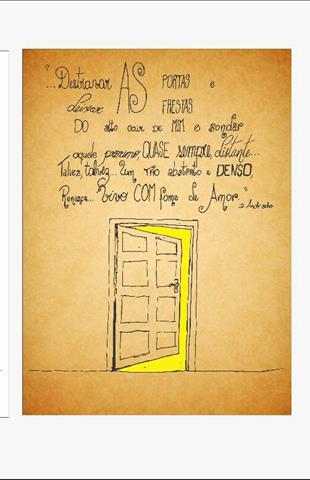 "...Destravar AS PORTAS e
deixar FRESTAS.
DO alto cair de MIM e sondar
aquele proximo, QUASE sempre, distante...
Talvez, talvez... Um não abstrato e DENSO,
Renasça... Vivo COM fome de Amor."
D. Andrade